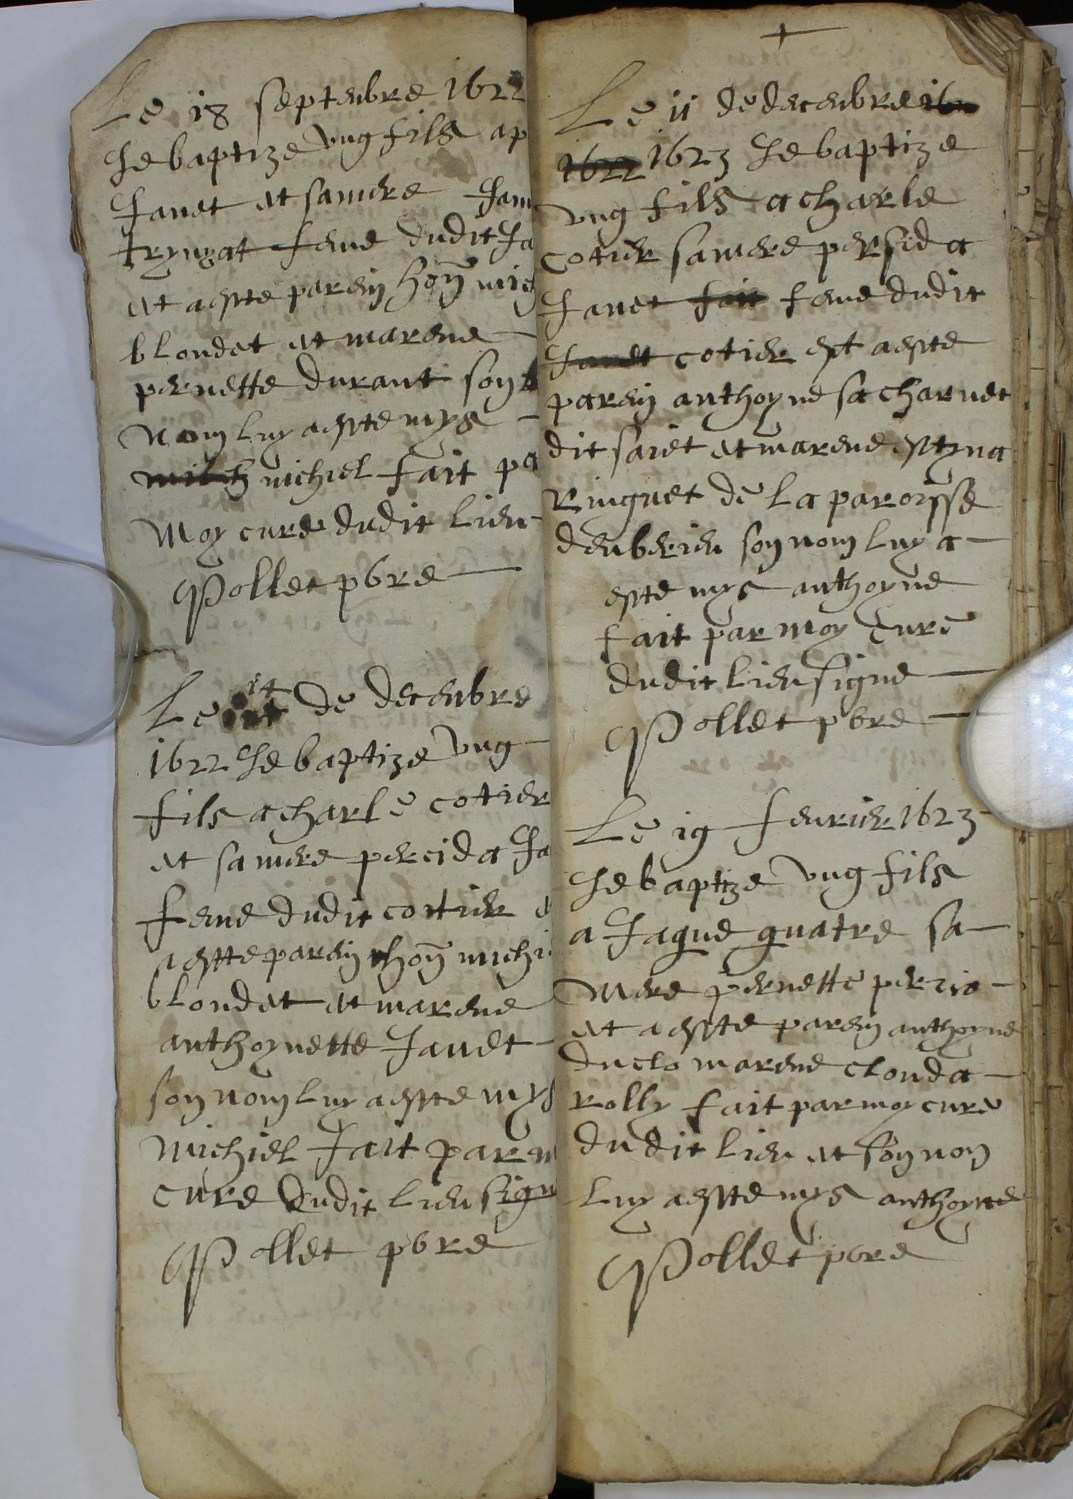 Le 18 septenbre 1622
Je baptize ung fils a p
Janet et sa mere Jan
trynzat feme dudit Ja
et a estte parein hon mic
blondet et marene
pernette durant son
nom luy a estte mys
michiel fait pa
Moy cure dudit lieu
Pollet pbre
Le 14 de decenbre
1622 Je baptize ung
fils a charle cotier
et sa mere percida Ja
feme dudit cottier e
a estte parein hon michi
blondet et marene
anthoynette Janet
son nom luy a estte mys
michiel fait par m
cure dudit lieu sign
Pollet pbre
Le 11 de decenbre 16
1622 1623 Je baptize
ung fils a charle
cotier sa mere persida
Janet fait feme dudit
Janet cotier est a este
parein anthoyne sacharnet
dit saiet et marene estyna
Ringuet de la paroisse
denberieu son nom luy a
este mys anthoyne
fait par moy cure
dudit lieu signe
Pollet pbre
Le 19 feuvrier 1623
Je baptize ung fils
a Jaque quatre sa
Mere pernette
et a estte parein anthoyne
duclo marene clouda
Rolly fait par moy cure
dudit lieu et son nom
luy a estte mys anthoyne
Pollet pbre